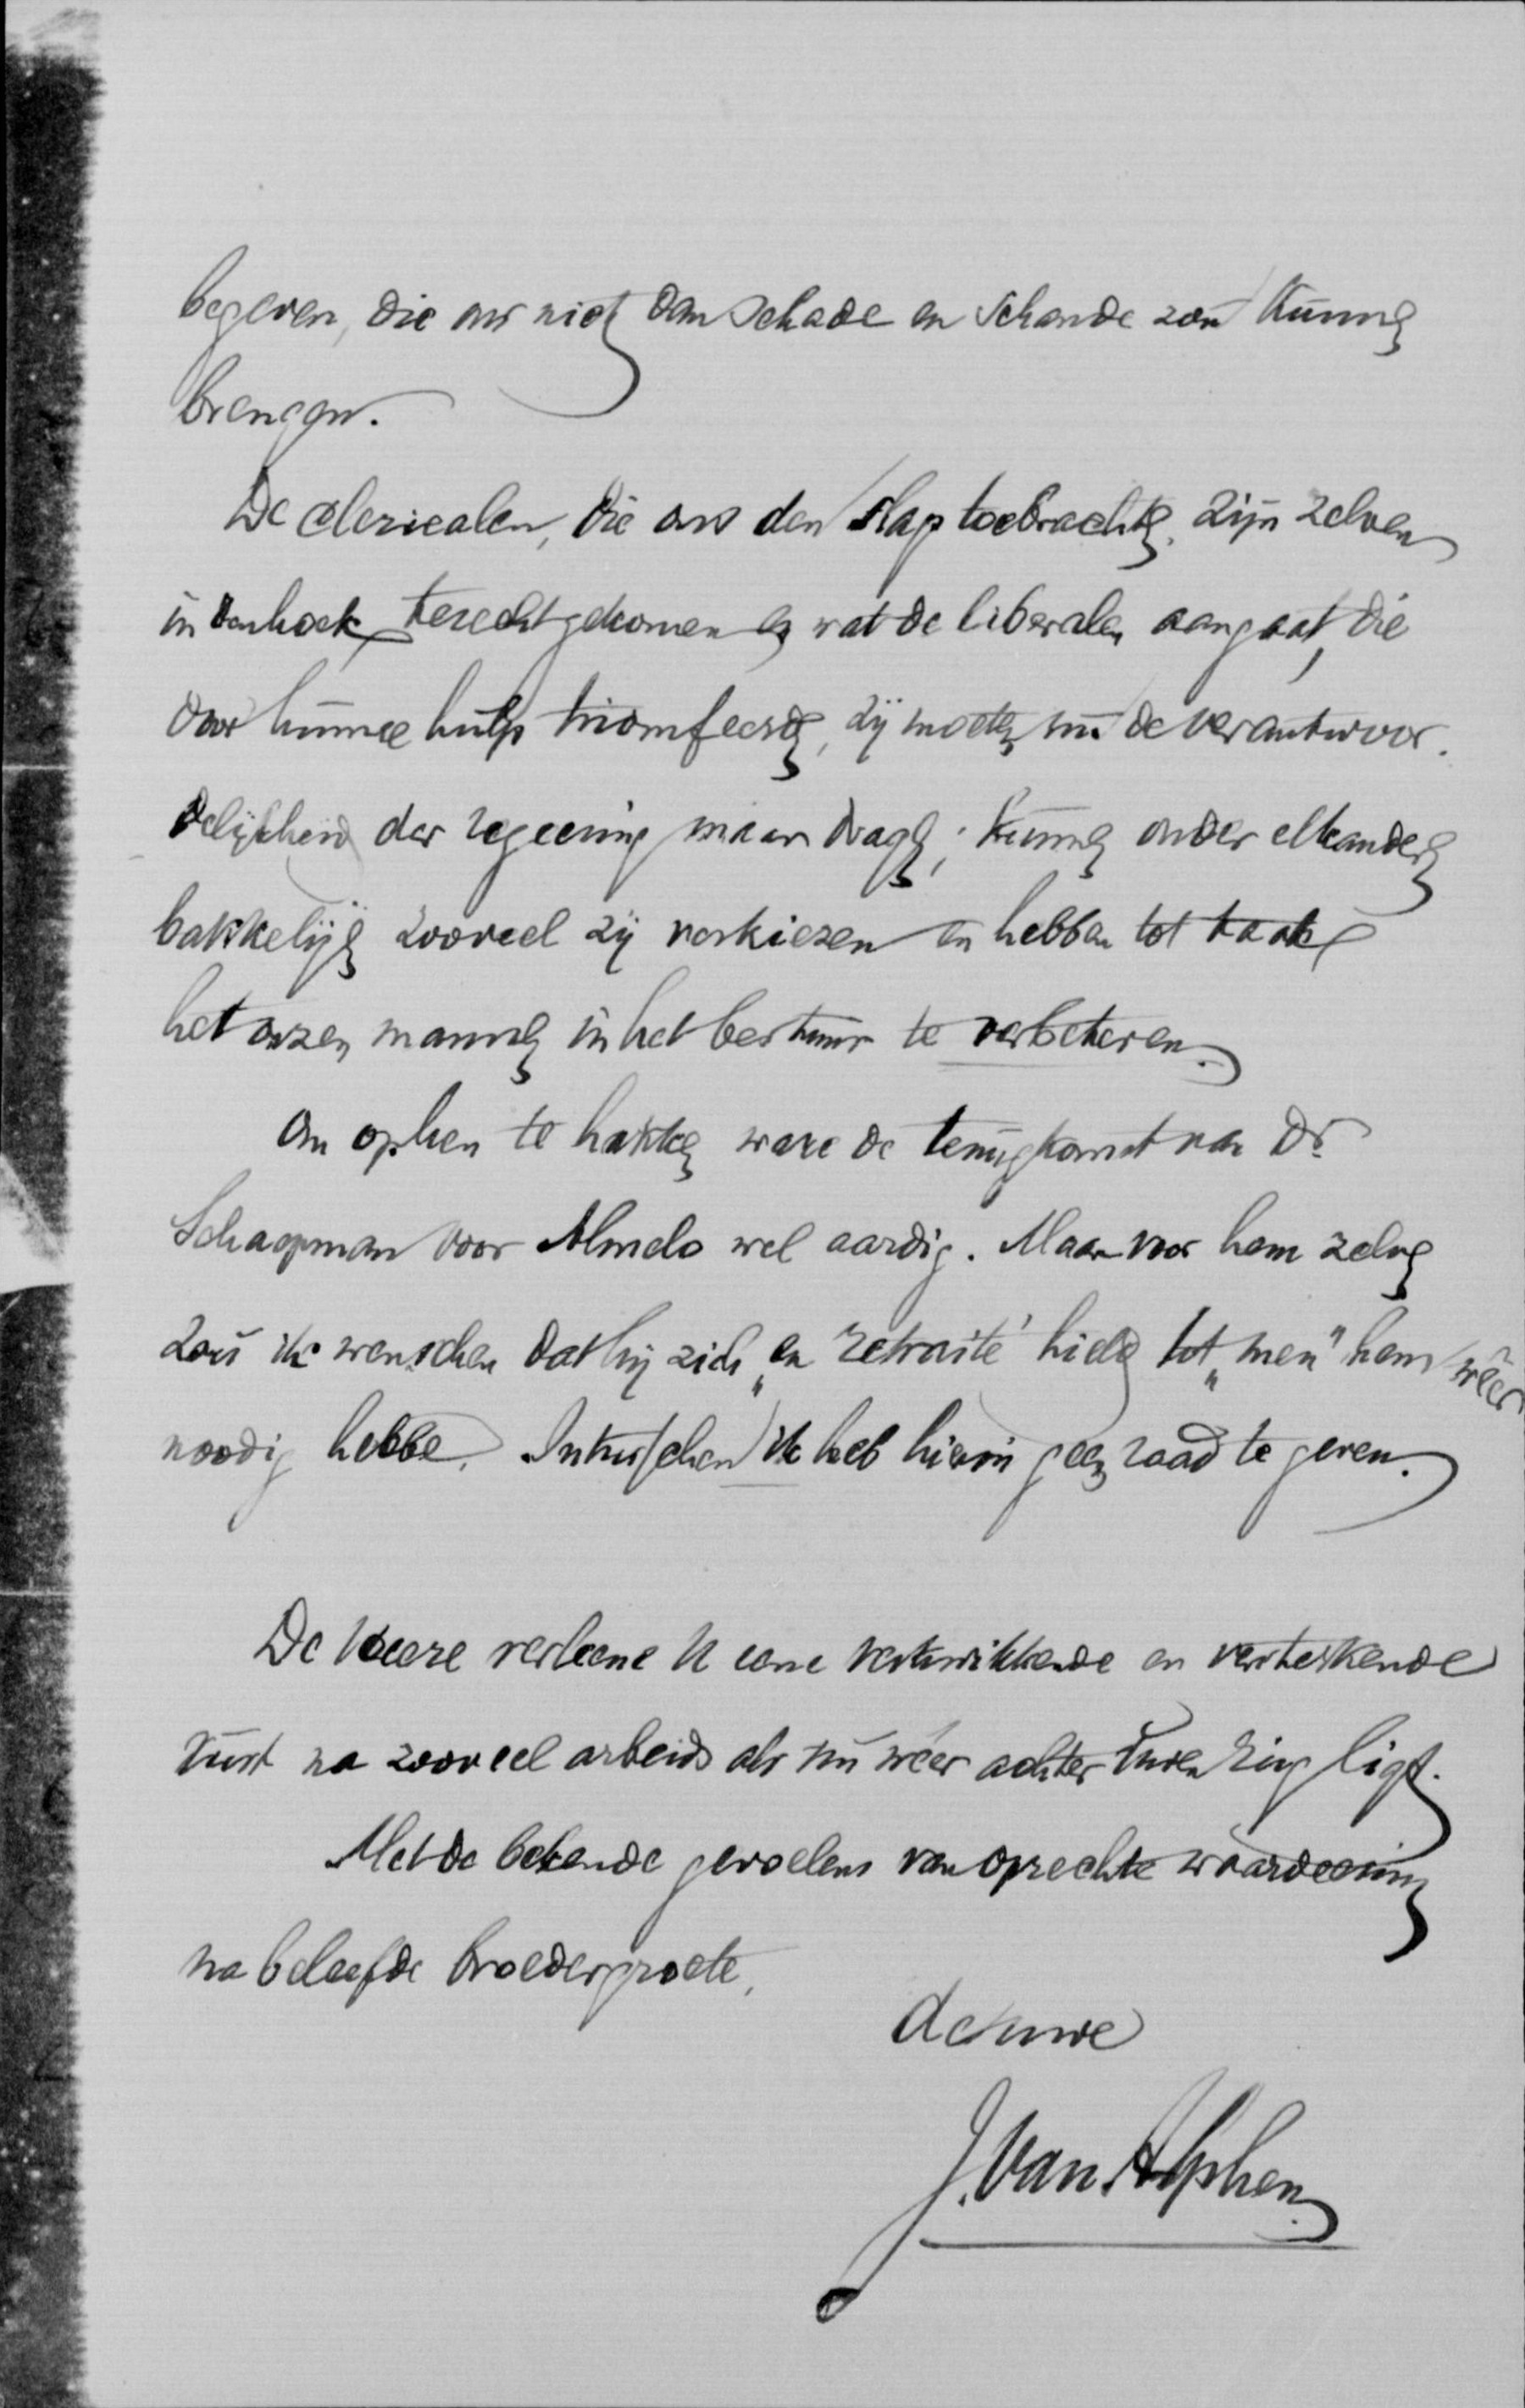 begeven, die ons niet dan schade en schande zou kunnen
brengen.
De clericalen, die ons den slag toebrachten, zijn zelven
in den hoek terechtgekomen en wat de liberalen aangaat, die
door hunne hulp triomfeerden, zij moeten nu de verantwoor-
delijkheid der regeering maar dragen, kunnen onder elkanderen
bakkeleijen zooveel zij verkiezen en hebben tot taak
het onzen mannen in het bestuur te verbeteren.
Om op hen te hakken ware de terugkomst van Dr.
Schaepman voor Almelo wel aardig. Maar voor hem zelven
zou ik wenschen dat hij zich „en retraite" hield tot „men" hem wêer
noodig hebbe. Intusschen ik heb hierin geen raad te geven.
De Heere verleene U eene verkwikkende en versterkende
rust na zooveel arbeids als nu wêer achter Uwen rug ligt.
Met de bekende gevoelens van oprechte waardeering
na beleefde broedergroete,
de uwe
J. van Alphen